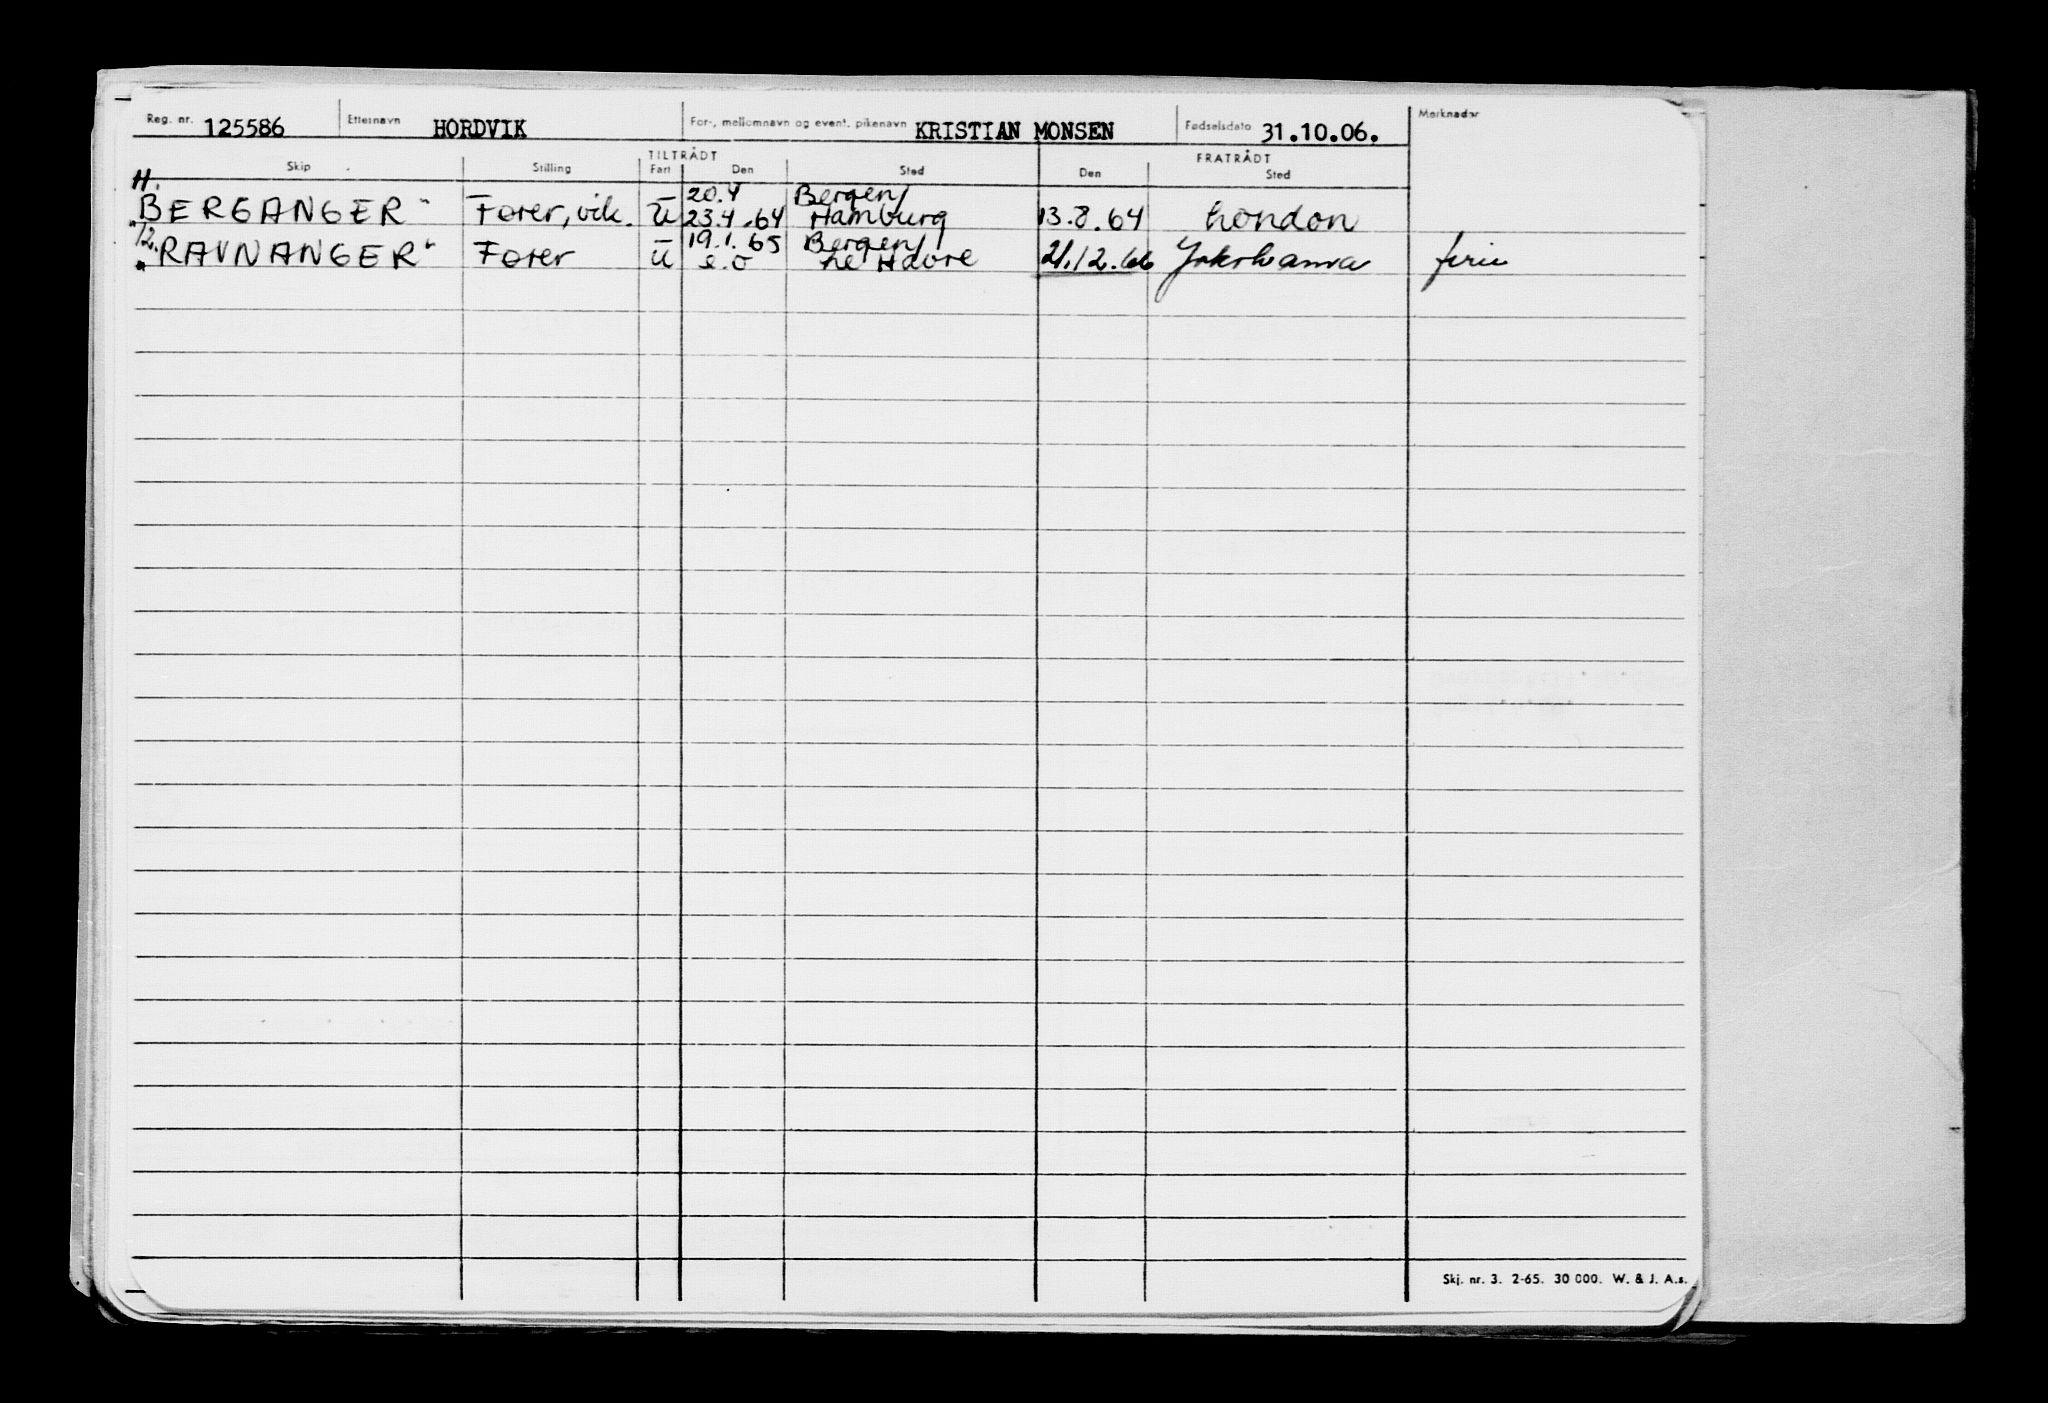 Reg. nr. 125586 Etternavn HORDVIK For-, mellomnavn og event. pikenavn KRISTIAN MONSEN Fødselsdato 31.10.06. Merknader
TILTRÅDT FRATRÅDT
Skip Stilling Fart Den Sted Den Sted
H. 20.4 Bergen/
"BERGANGER" Fører, vik. U 23.4.64 Hamburg 13.8.64 London
12. 19.1.65 Bergen/
"RAVNANGER" Fører U s.d Le Havre 21.12.66 Yokohama ferie
Skj. nr. 3. 2-65. 30 000. W. & J. A.s.